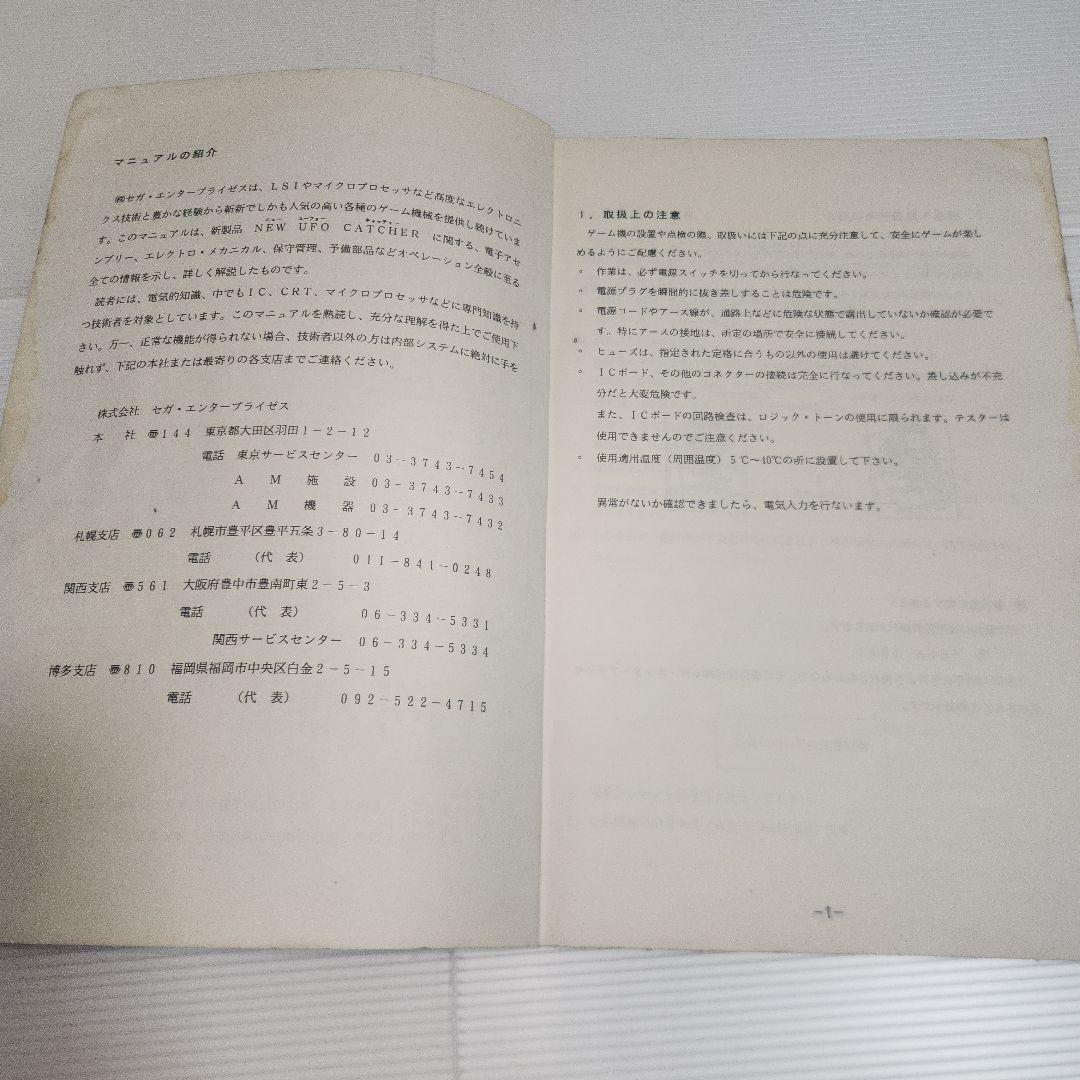 マニュアルの紹介
㈱セガ・エンタープライゼスは、LSIやマイクロプロセッサなど高度なエレクトロニ
クス技術と豊かな経験から斬新でしかも人気の高い各種のゲーム機械を提供し続けていま
す。このマニュアルは、新製品 NEW UFO CATCHER に関する、電子アセ
ンブリー、エレクトロ・メカニカル、保守管理、予備部品などオペレーション全般に至る
全ての情報を示し、詳しく解説したものです。
読者には、電気的知識、中でもIC、CRT、マイクロプロセッサなどに専門知識を持
つ技術者を対象としています。このマニュアルを熟読し、充分な理解を得た上でご使用下
さい。万一、正常な機能が得られない場合、技術者以外の方は内部システムに絶対に手を
触れず、下記の本社または最寄りの各支店までご連絡ください。
株式会社 セガ・エンタープライゼス
本 社 〠144 東京都大田区羽田1-2-12
電話 東京サービスセンター 03-3743-7454
AM施設 03-3743-7433
AM機器 03-3743-7432
札幌支店 〠062 札幌市豊平区豊平五条3-80-14
電話 (代 表) 011-841-0248
関西支店 〠561 大阪府豊中市豊南町東2-5-3
電話 (代 表) 06-334-5331
関西サービスセンター 06-334-5334
博多支店 〠810 福岡県福岡市中央区白金2-5-15
電話 (代 表) 092-522-4715
1. 取扱上の注意
ゲーム機の設置や点検の際、取扱いには下記の点に充分注意して、安全にゲームが楽し
めるようにご配慮ください。
。 作業は、必ず電源スイッチを切ってから行なってください。
。 電源プラグを瞬間的に抜き差しすることは危険です。
。 電源コードやアース線が、通路上などに危険な状態で露出していないか確認が必要で
す。特にアースの接地は、所定の場所で安全に接続してください。
。 ヒューズは、指定された定格に合うもの以外の使用は避けてください。
。 ICボード、その他のコネクターの接続は完全に行なってください。差し込みが不充
分だと大変危険です。
また、ICボードの回路検査は、ロジック・トーンの使用に限られます。テスターは
使用できませんのでご注意ください。
。 使用適用温度(周囲温度) 5℃〜40℃の所に設置して下さい。
異常がないか確認できましたら、電気入力を行ないます。
-1-